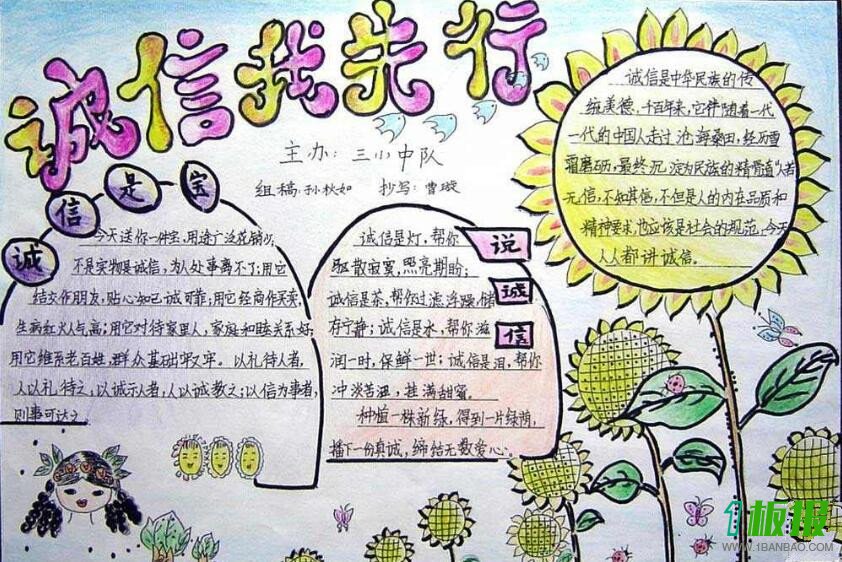 诚信我先行
主办:三小中队
组稿:孙秋如 抄写:曹璇
诚信是宝
今天送你一件宝,用途广泛花销少,
不是实物是诚信,为人处事离不了;用它
结交作朋友,贴心知己诚可靠;用它经商作买卖,
生病红火人气高;用它对待家里人,家庭和睦关系好;
用它维系老百姓,群众基础牢又牢。以礼待人者,
人以礼待之,以诚示人者,人以诚教之;以信为事者,
则事可达之
说诚信
诚信是灯,帮你
驱散寂寞,照亮期盼;
诚信是茶,帮你过滤浮躁,储
存宁静;诚信是水,帮你滋
润一时,保鲜一世;诚信是泪,帮你
冲淡苦涩,挂满甜蜜。
种植一株新绿,得到一片绿荫,
播下一份真诚,缔结无数爱心。
诚信是中华民族的传
统美德,千百年来,它伴随着一代
一代的中国人走过沧海桑田,经历雪
霜磨砺,最终沉淀为民族的精骨道"人若
无信,不如其他,不但是人的内在品质和
精神要求,也应该是社会的规范,今天
人人都讲诚信。
1板报
WWW.1BANBAO.COM